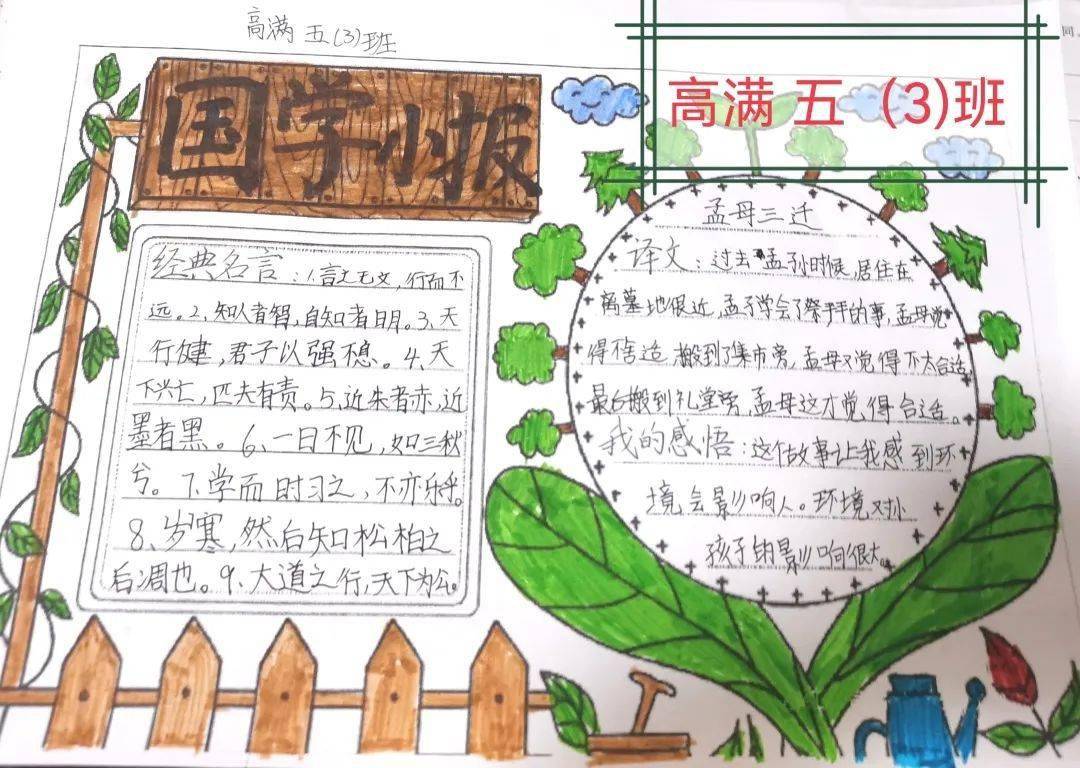 高满 五(3)班
高满 五 (3)班
国学小报
经典名言:1.言之无文,行而不
远。2、知人者智,自知者明。3、天
行健,君子以强不息。4、天
下兴亡,匹夫有责。5、近朱者赤,近
墨者黑。6、一日不见,如三秋
兮。7、学而时习之,不亦乐乎。
8、岁寒,然后知松柏之
后凋也。9、大道之行,天下为公。
孟母三迁
译文:过去孟子小时候,居住在
离墓地很近,孟子学会了祭拜的事,孟母觉
得搬到了集市旁,孟母又觉得不太合适,
最后搬到礼堂旁,孟母这才觉得合适。
我的感悟:这个故事让我感到环
境会影响人。环境对小
孩子的影响很大。